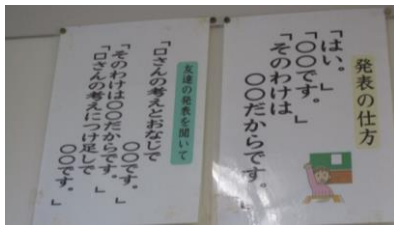 発表の仕方
「はい。」
「〇〇です。」
「そのわけは
〇〇だからです。」
友達の発表を聞いて
「口さんの考えとおなじで
〇〇です。」
「そのわけは〇〇だからです。」
「口さんの考えにつけ足しで
〇〇です。」